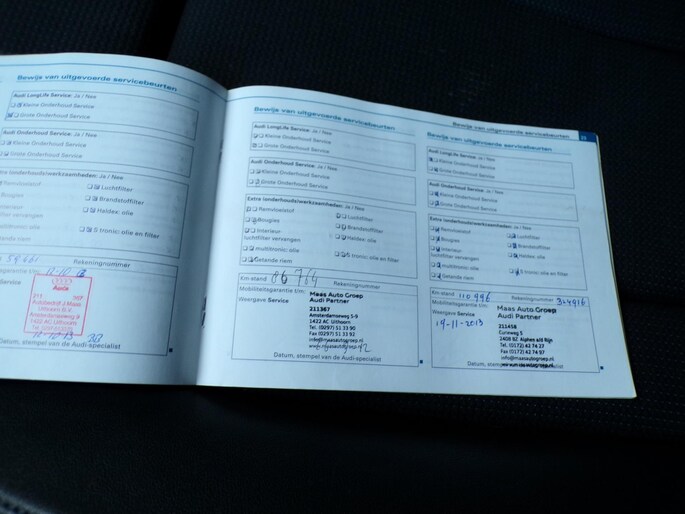 Bewijs van uitgevoerde servicebeurten
Audi LongLife Service: Ja / Nee
Kleine Onderhoud Service
Grote Onderhoud Service
Audi Onderhoud Service: Ja / Nee
Kleine Onderhoud Service
Grote Onderhoud Service
Extra (onderhouds)werkzaamheden: Ja / Nee
Remvloeistof
Luchtfilter
Bougies
Brandstoffilter
Interieur
luchtfilter vervangen
Haldex: olie
multitronic: olie
S tronic: olie en filter
Getande riem
Rekeningnummer
Mobiliteitsgarantie t/m:
Weergave Service
Audi
Datum, stempel van de Audi-specialist
Bewijs van uitgevoerde servicebeurten
Audi LongLife Service: Ja / Nee
Kleine Onderhoud Service
Grote Onderhoud Service
Audi Onderhoud Service: Ja / Nee
Kleine Onderhoud Service
Grote Onderhoud Service
Extra (onderhouds)werkzaamheden: Ja / Nee
Remvloeistof
Luchtfilter
Bougies
Brandstoffilter
Interieur
luchtfilter vervangen
Haldex: olie
multitronic: olie
S tronic: olie en filter
Getande riem
Km-stand 86764
Rekeningnummer
Mobiliteitsgarantie t/m:
Weergave Service
Maas Auto Groep
Audi Partner
211367
Amsterdamseweg 5-9
1422 AC Uithoorn
Tel. (0297) 51 33 90
Fax (0297) 51 33 92
info@maasautogroep.nl
www.maasautogroep.nl
Datum, stempel van de Audi-specialist
Bewijs van uitgevoerde servicebeurten
Bewijs van uitgevoerde servicebeurten
Audi LongLife Service: Ja / Nee
Kleine Onderhoud Service
Grote Onderhoud Service
Audi Onderhoud Service: Ja / Nee
Kleine Onderhoud Service
Grote Onderhoud Service
Extra (onderhouds)werkzaamheden: Ja / Nee
Remvloeistof
Luchtfilter
Bougies
Brandstoffilter
Interieur
luchtfilter vervangen
Haldex: olie
multitronic: olie
S tronic: olie en filter
Getande riem
Km-stand 110996
Rekeningnummer 324916
Mobiliteitsgarantie t/m:
Weergave Service
19-11-2013
Maas Auto Groep
Audi Partner
211458
Euroweg 5
2408 BZ Alphen a/d Rijn
Tel. (0172) 42 74 27
Fax (0172) 42 74 97
info@maasautogroep.nl
www.maasautogroep.nl
Datum, stempel van de Audi-specialist